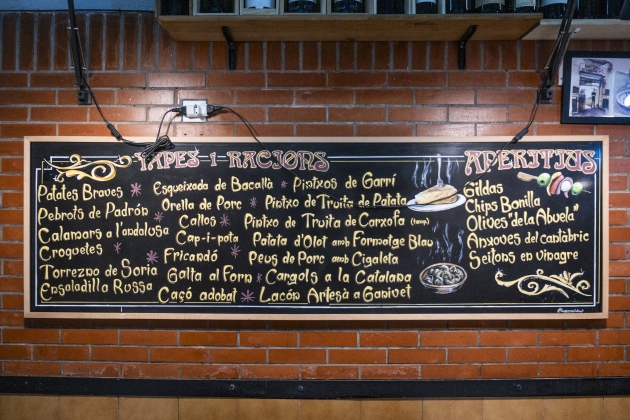 TAPES I RACIONS
Patates Braves
Pebrots de Padrón
Calamars a l'andalusa
Croquetes
Torrezno de Soria
Ensaladilla Russa
Esqueixada de Bacallà
Orella de Porc
Callos
Cap-i-pota
Fricandó
Galta al Forn
Caçó adobat
Pintxos de Garrí
Pintxo de Truita de Patata
Pintxo de Truita de Carxofa (temp)
Patata D'Olot amb Formatge Blau
Peus de Porc amb Cigaleta
Cargols a la Catalana
Lacón Artesà a Ganivet
APERITIUS
Gildas
Chips Bonilla
Olives "de la Abuela"
Anxoves del cantàbric
Seitons en vinagre